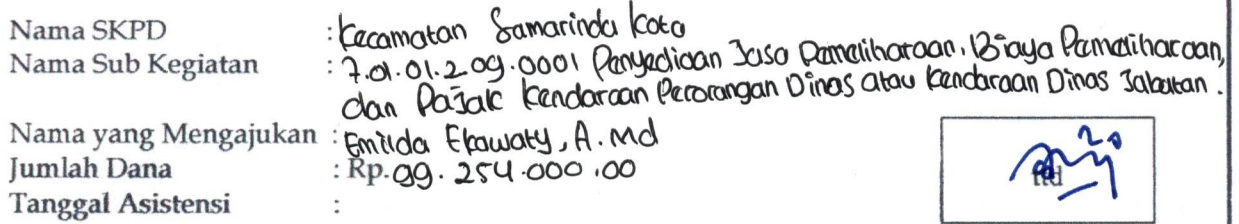 Nama SKPD : Kecamatan Samarinda Kota
Nama Sub Kegiatan : 7.01.01.2.09.0001 Penyediaan Jasa Pemeliharaan, Biaya Pemeliharaan,
dan Pajak Kendaraan Perorangan Dinas atau Kendaraan Dinas Jabatan.
Nama yang Mengajukan : Emilda Ekawaty, A.Md
Jumlah Dana : Rp. 99.254.000,00
ttd
Tanggal Asistensi :